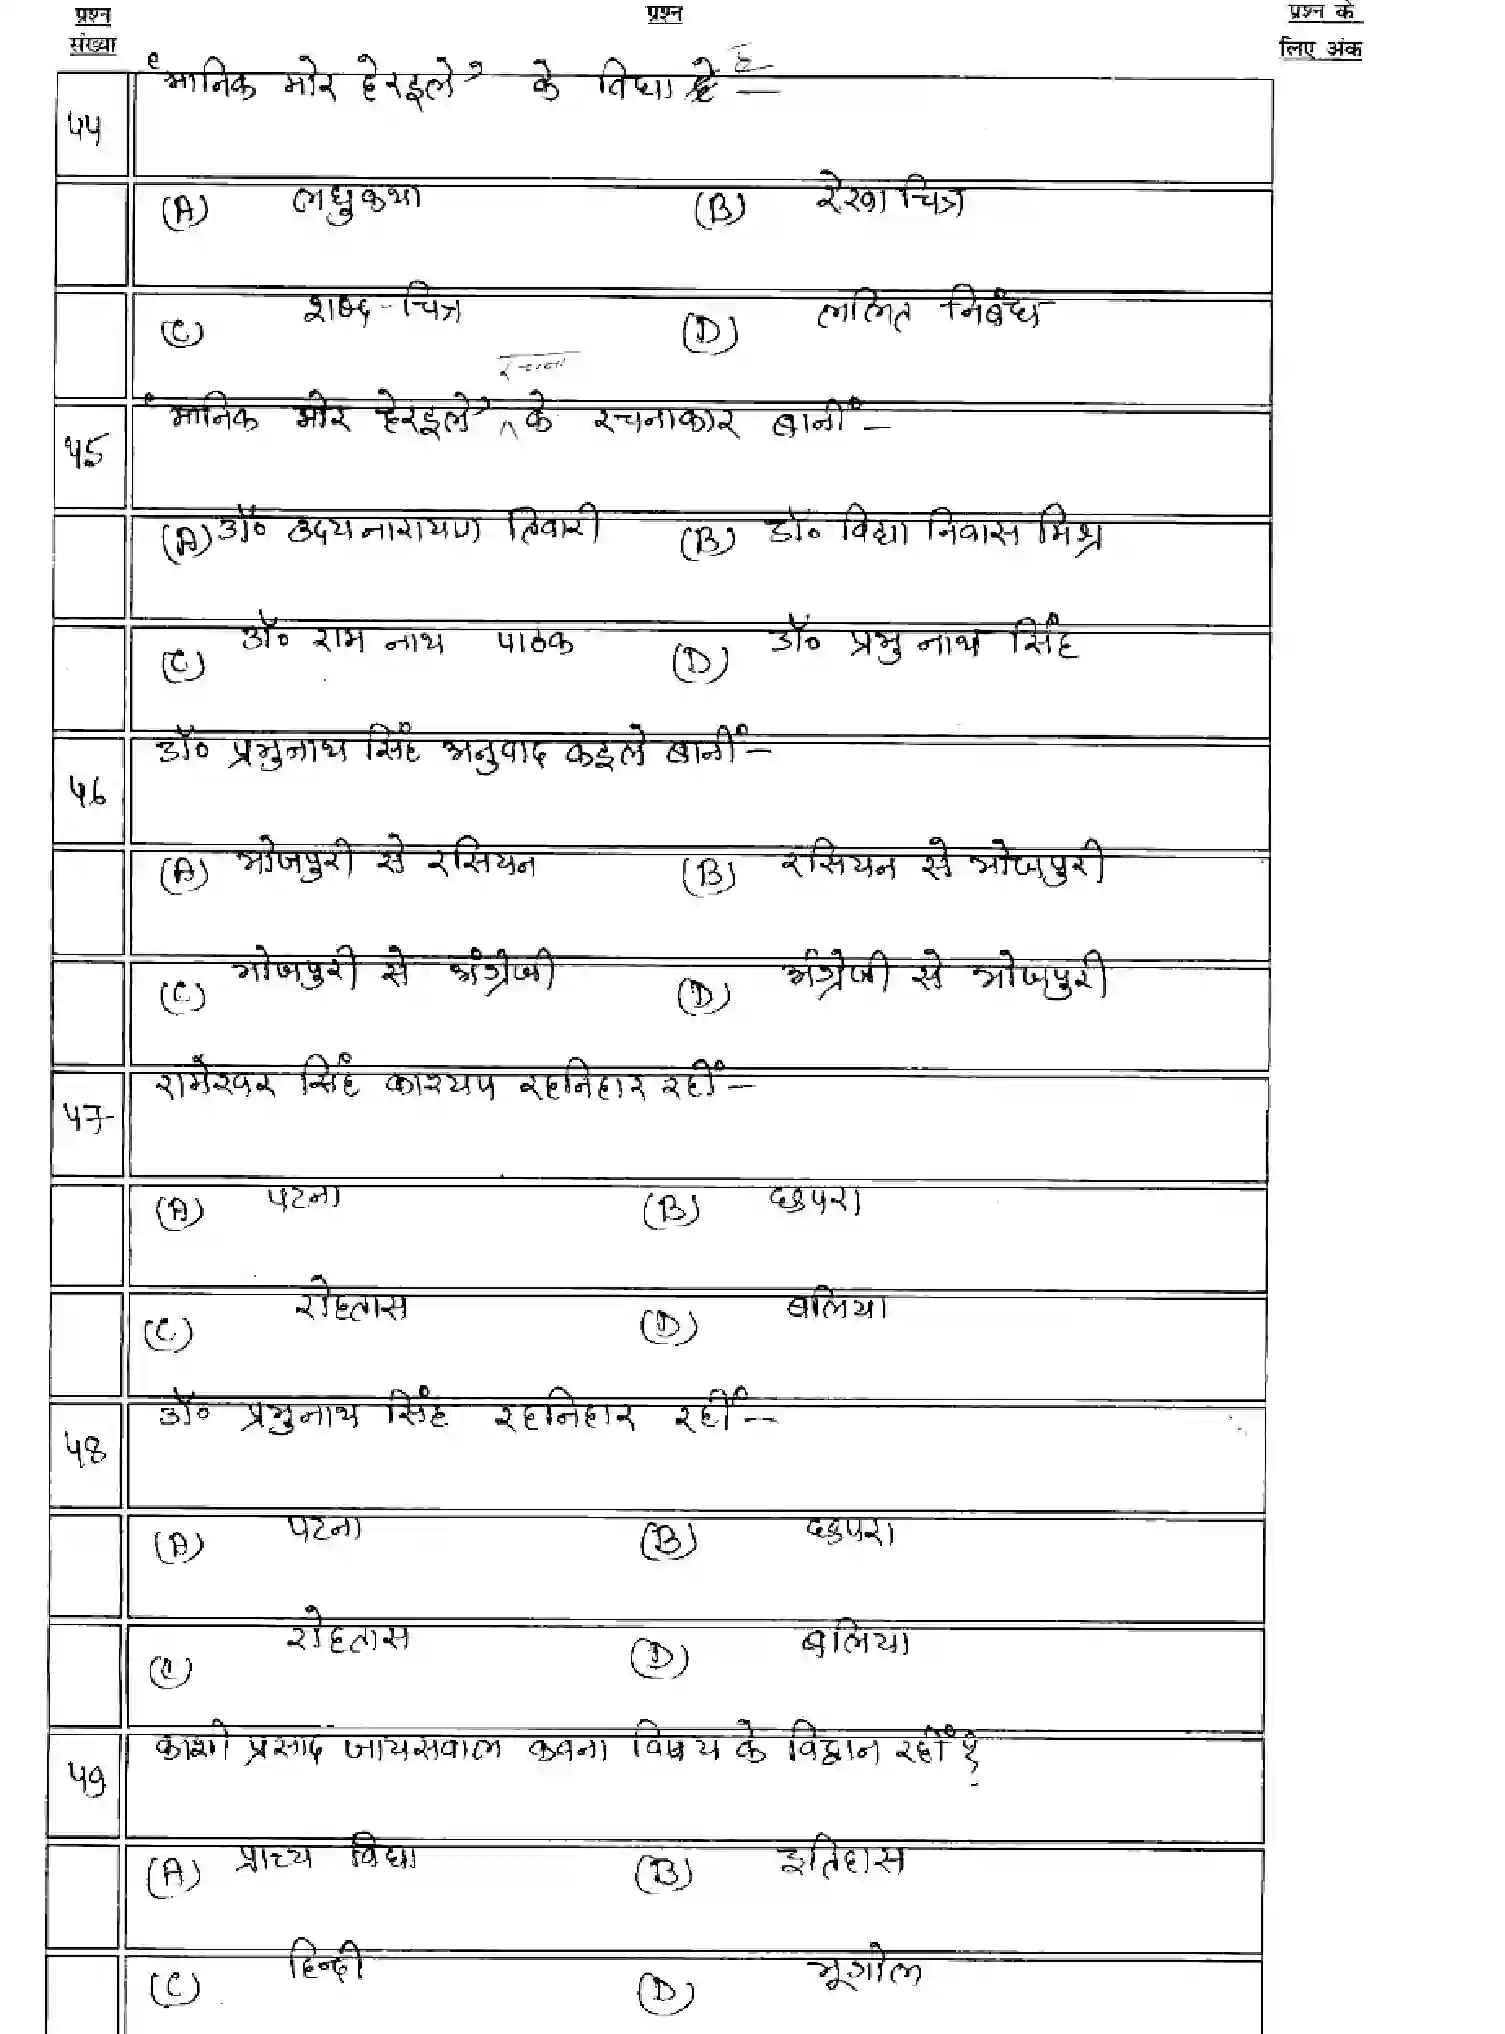 प्रश्न प्रश्न प्रश्न के
संख्या लिए अंक
है
44 'मानिक मोर हेरइले' के विधा —
(A) लघुकथा (B) रेखा चित्र
(C) शब्द-चित्र (D) ललित निबंध
रचना
45 'मानिक मोर हेरइले' ^ के रचनाकार बानीं —
(A) डॉ० उदय नारायण तिवारी (B) डॉ० विद्या निवास मिश्र
(C) डॉ० राम नाथ पाठक (D) डॉ० प्रभु नाथ सिंह
46 डॉ० प्रभुनाथ सिंह अनुवाद कइले बानीं —
(A) भोजपुरी से रसियन (B) रसियन से भोजपुरी
(C) भोजपुरी से अंग्रेजी (D) अंग्रेजी से भोजपुरी
47 रामेश्वर सिंह काश्यप रहनिहार रहीं —
(A) पटना (B) छपरा
(C) रोहतास (D) बलिया
48 डॉ० प्रभुनाथ सिंह रहनिहार रहीं —
(A) पटना (B) छपरा
(C) रोहतास (D) बलिया
49 काशी प्रसाद जायसवाल कवना विषय के विद्वान रहीं ?
(A) प्राच्य विद्या (B) इतिहास
(C) हिन्दी (D) भूगोल